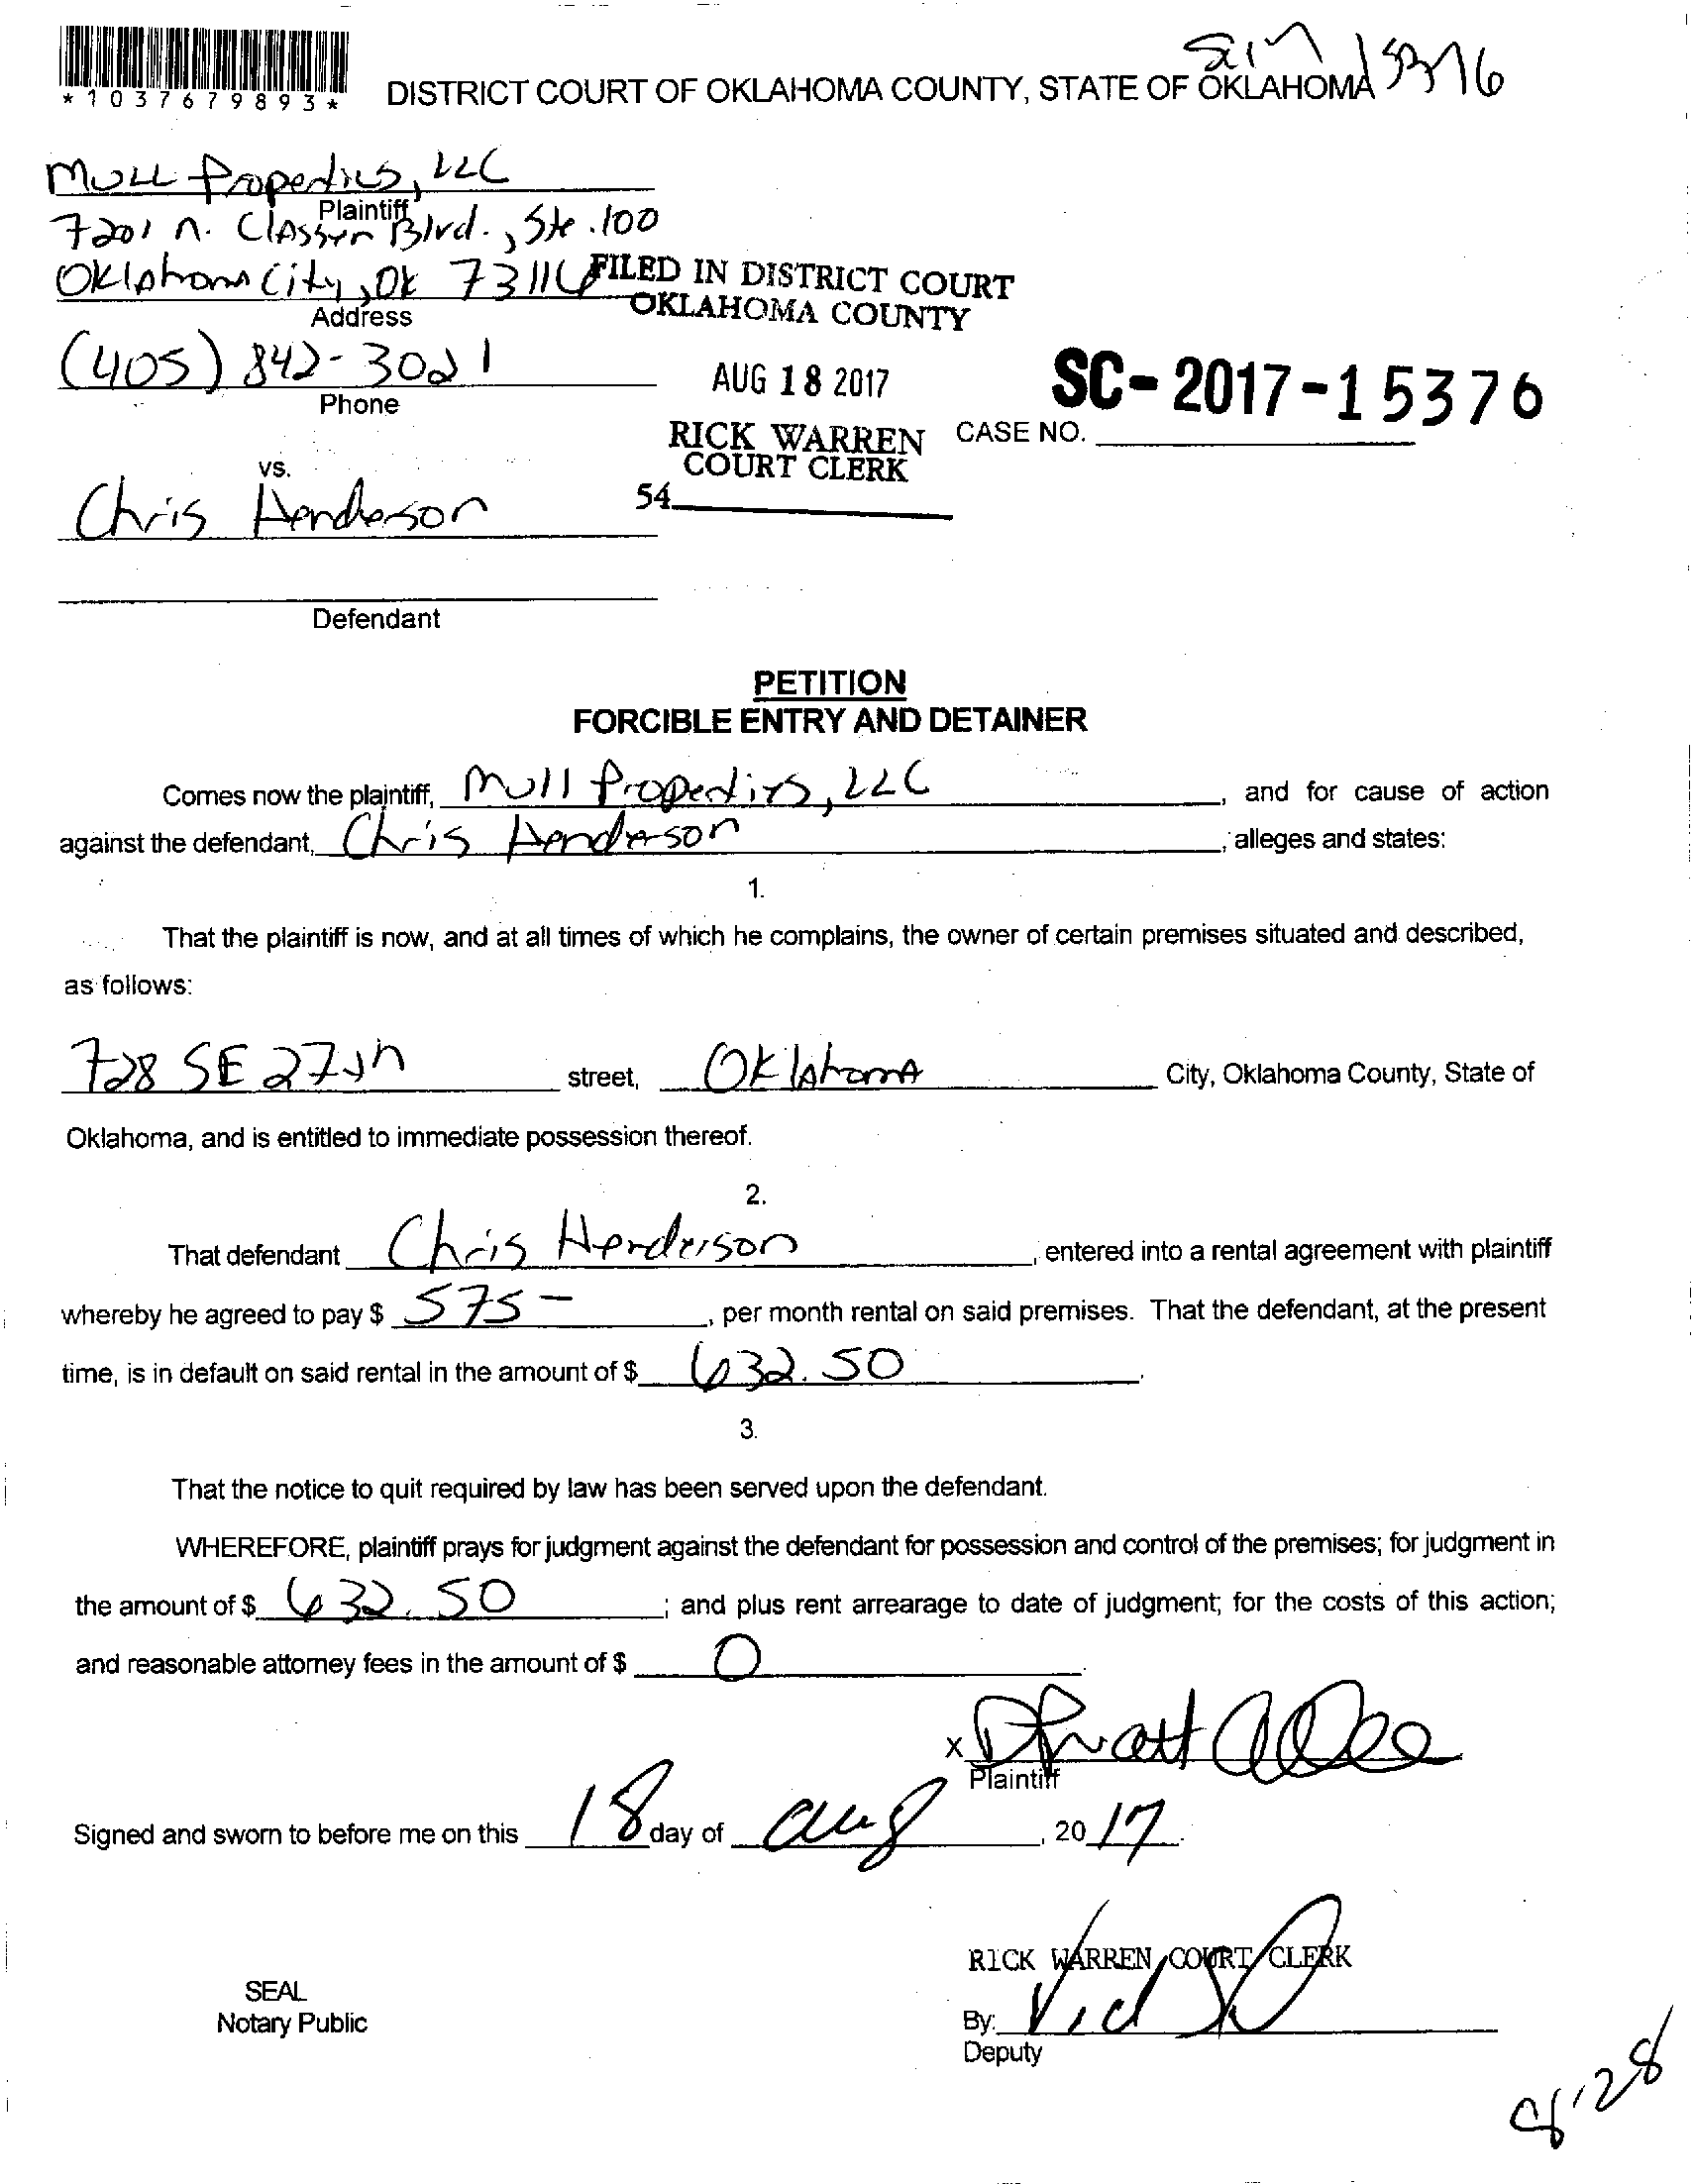 *1037679893*
DISTRICT COURT OF OKLAHOMA COUNTY, STATE OF OKLAHOMA
Mull Properties, LLC
Plaintiff
7201 N. Classen Blvd., Ste. 100
Oklahoma City, OK 73116
Address
FILED IN DISTRICT COURT
OKLAHOMA COUNTY
(405) 842-3021
Phone
AUG 18 2017
SC-2017-15376
RICK WARREN
COURT CLERK
CASE NO.
54
vs.
Chris Henderson
Defendant
PETITION
FORCIBLE ENTRY AND DETAINER
Comes now the plaintiff, Mull Properties, LLC, and for cause of action
against the defendant, Chris Henderson, alleges and states:
1.
That the plaintiff is now, and at all times of which he complains, the owner of certain premises situated and described,
as follows:
728 SE 27th street, Oklahoma City, Oklahoma County, State of
Oklahoma, and is entitled to immediate possession thereof.
2.
That defendant Chris Henderson, entered into a rental agreement with plaintiff
whereby he agreed to pay $ 575-, per month rental on said premises. That the defendant, at the present
time, is in default on said rental in the amount of $ 632.50.
3.
That the notice to quit required by law has been served upon the defendant.
WHEREFORE, plaintiff prays for judgment against the defendant for possession and control of the premises; for judgment in
the amount of $ 632.50; and plus rent arrearage to date of judgment; for the costs of this action;
and reasonable attorney fees in the amount of $ 0.
X
Plaintiff
Signed and sworn to before me on this 18 day of Aug, 20 17.
RICK WARREN, COURT CLERK
SEAL
Notary Public
By:
Deputy
8-28